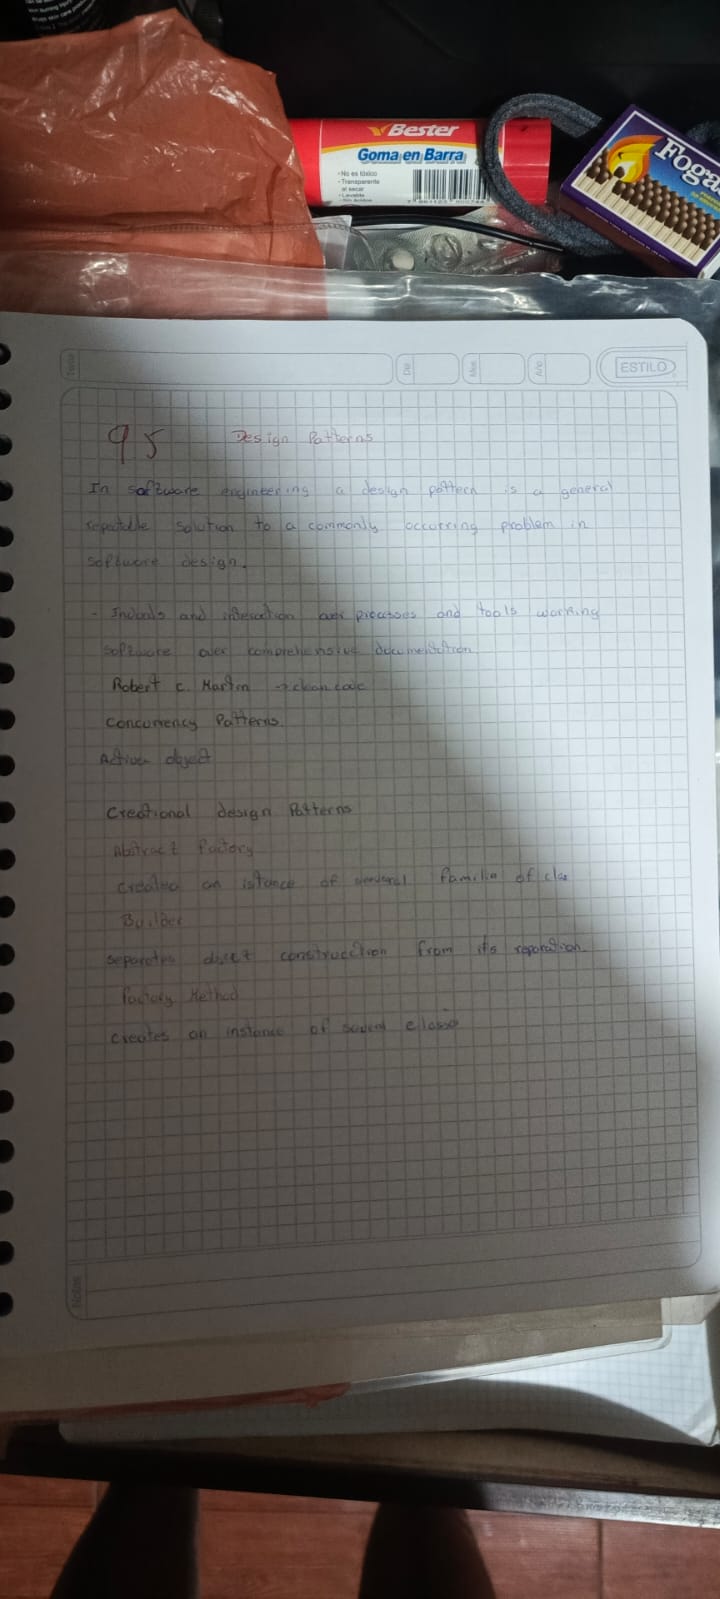 Bester
Goma en Barra
• No es tóxico
• Transparente
al secar
• Lavable
Foga
Tema
Día
Mes
Año
ESTILO
95 Design Patterns
In software engineering a design pattern is a general
repeatable solution to a commonly occurring problem in
software design.
- and over processes and tools working
software over comprehensive documentation
Robert C. Martin → clean code
Concurrency Patterns
Active object
Creational design Patterns
Abstract Factory
an istance of Familia of clas
Builder
Separates construcction from its
Factory Method
Creates an instance of
Notas